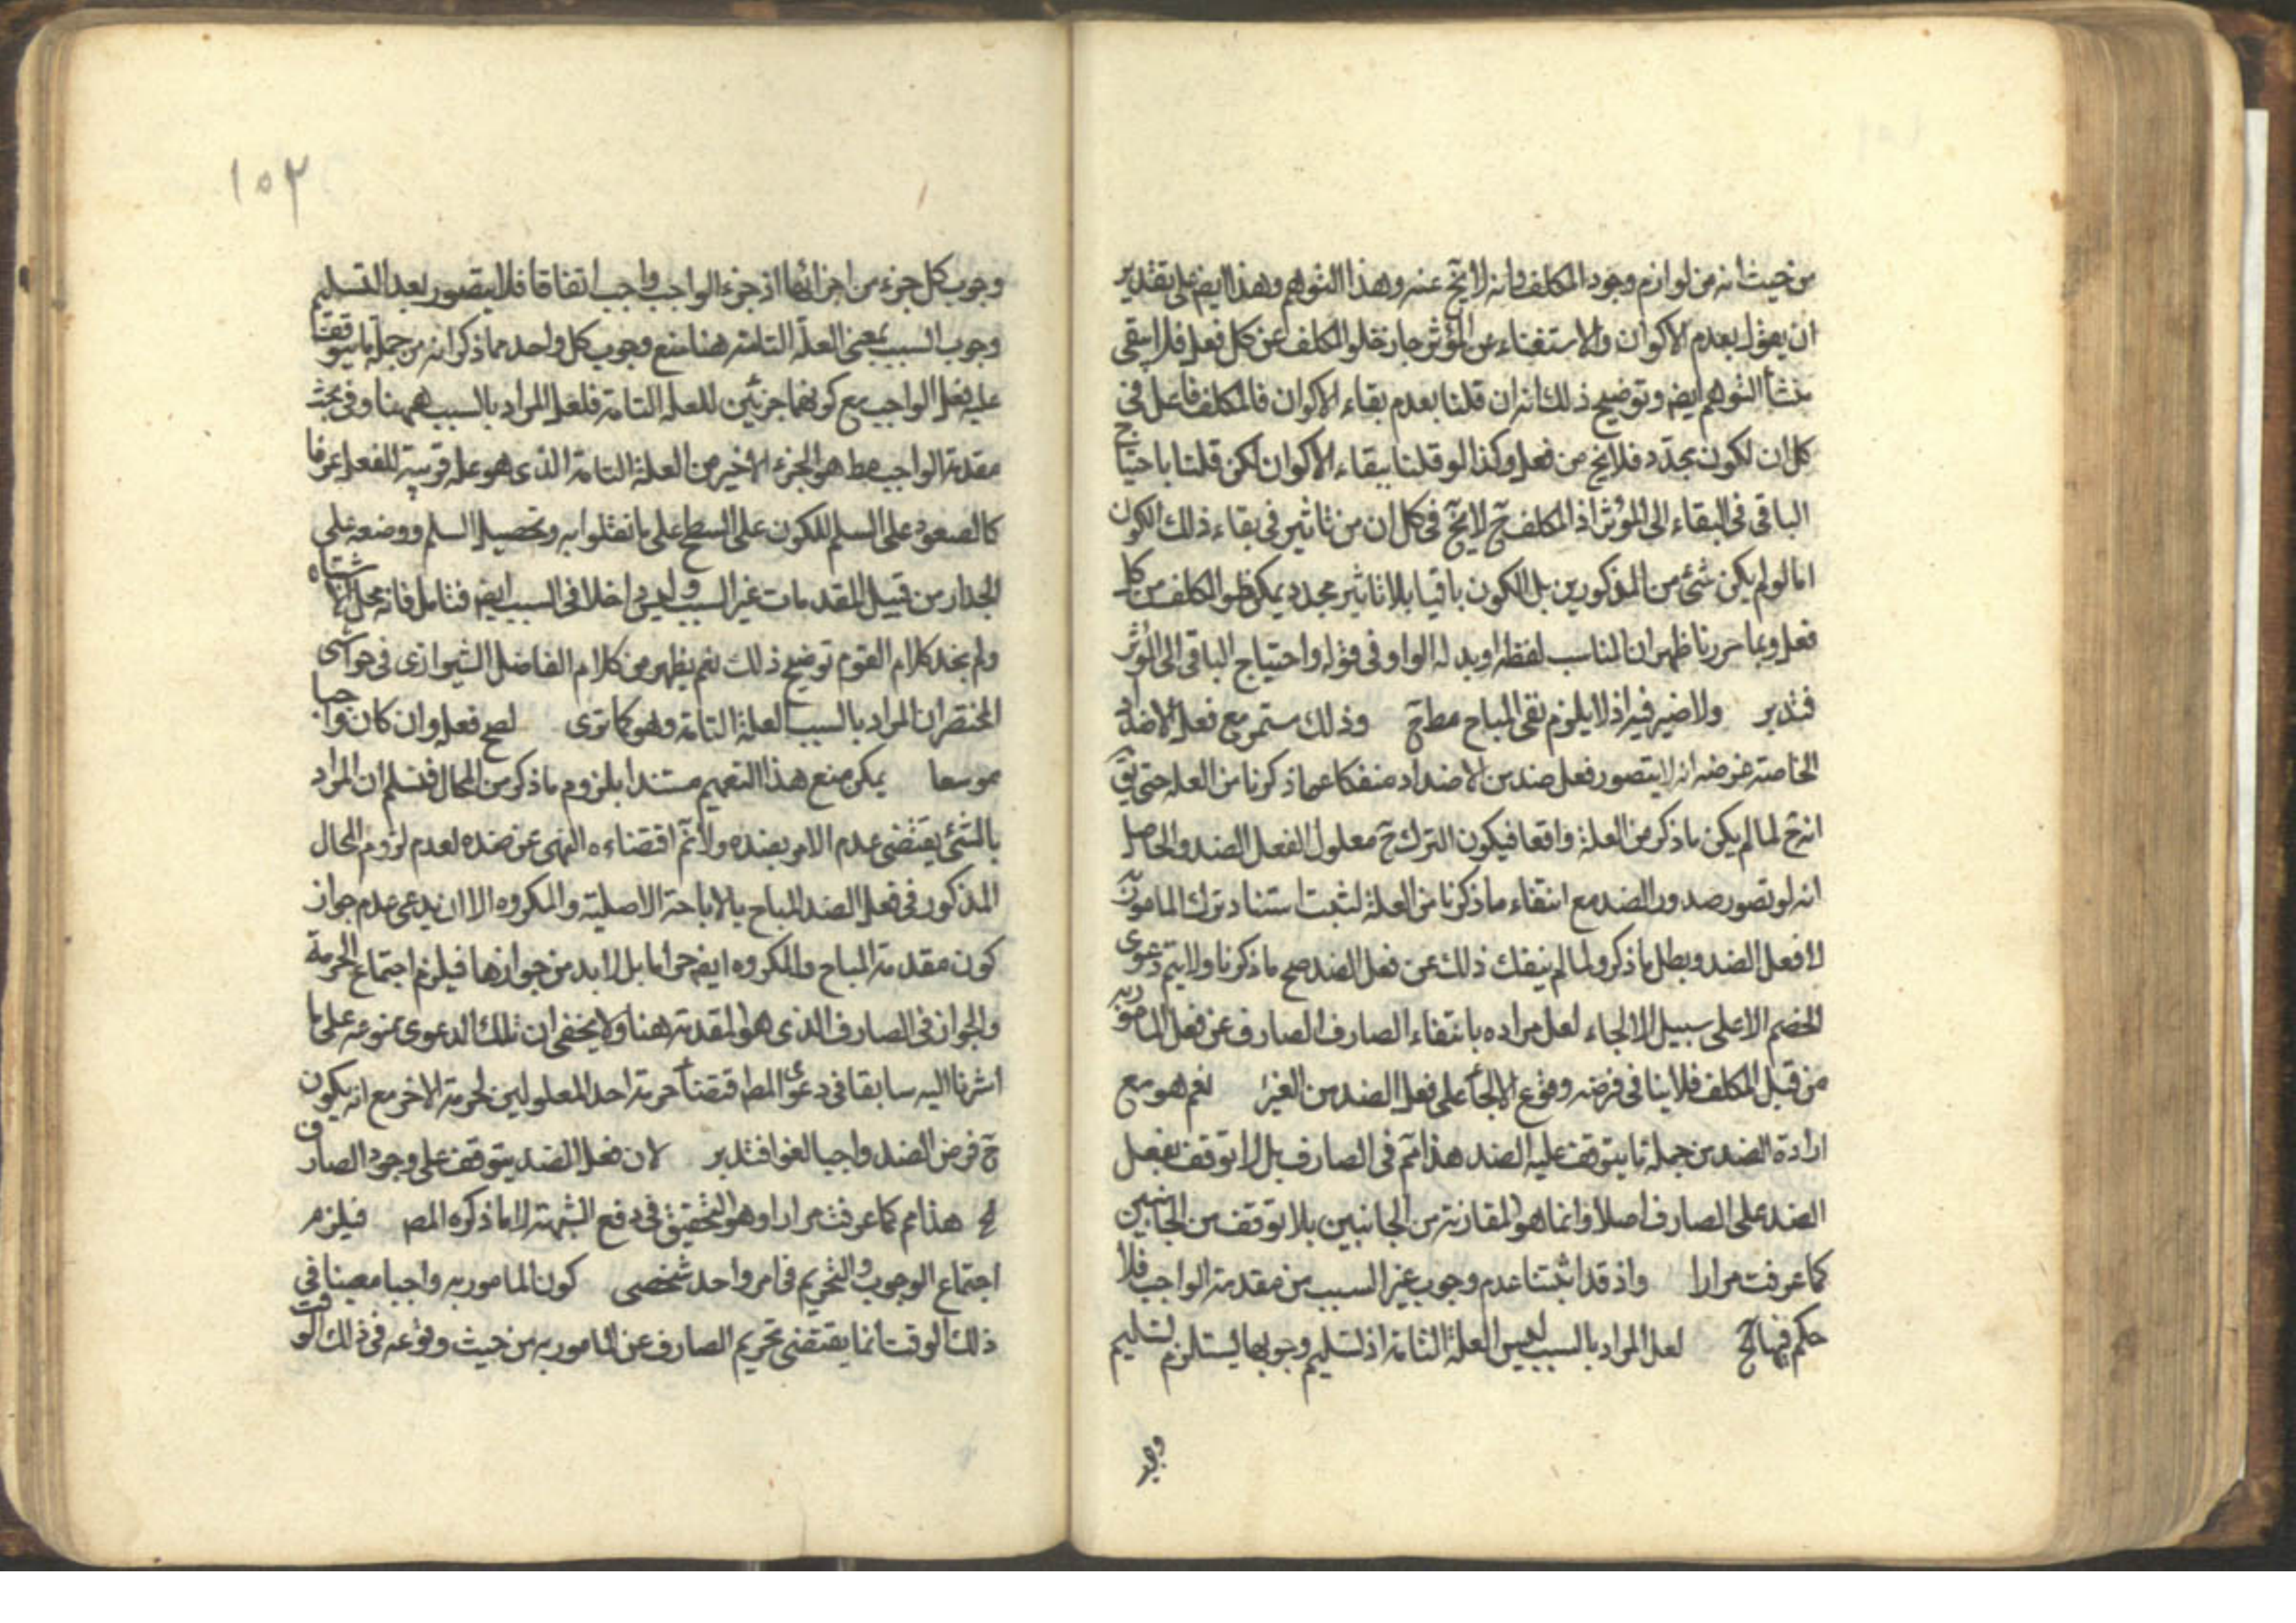 من حيث انه من لوازم وجود المكلف وانه لا يخ عنه وهذا التوهم وهذا ايضم على تقدير
ان يعول بعدم الاكوان والاستغناء عن المؤثر جاز خلو المكلف عن كل فعل فلا يبقى
منشأ التوهم ايضم وتوضيح ذلك انه ان قلنا بعدم بقاء الاكوان فالمكلف فاعل في
كل ان لكون مجدّد فلا يخ من فعل وكذا لو قلنا ببقاء الاكوان لكن قلنا باحتياج
الباقى فى البقاء الى المؤثر اذ المكلف ح لا يخ فى كل ان من تاثير فى بقاء ذلك الكون
اما لو لم يكن شئ من المذكورين بل الكون باقيا بلا تاثير مجدد يمكن خلو المكلف من كل
فعل وبما حررنا ظهر ان المناسب لفظه او بدله الواو فى قوله واحتياج الباقى الى المؤثر
فتدبر ولا ضير فيه اذ لا يلزم نفى المباح مط ح وذلك ستمر مع فعل الاضداد
الخاصة غرضه انه لا يتصور فعل ضد من الاضداد منفكا عما ذكرنا من العلة حتى يق
انه ح لما لم يكن ما ذكر من العلة واقعا فيكون الترك ح معلول الفعل الضد والحاصل
انه لو تصور صدور الضد مع انتفاء ما ذكرنا من العلة لثبت استناد ترك المامور به
لا فعل الضد وبطل ما ذكر ولما لم ينفك ذلك عن فعل الضد صح ما ذكرنا ولا يتم دعوى
الخضم الا على سبيل الالجاء لعل مراده بانتفاء الصارف الصارف عن فعل المامور به
من قبل المكلف فلا ينافى فرضه وقوع الالجأ على فعل الضد من الغير نعم هو مع
ارادة الضد من جملة ما يتوقف عليه الضد هذا مم فى الصارف بل لا توقف لفعل
الضد على الصارف اصلا وانما هو المقارنة من الجانبين بلا توقف من الجانبين
كما عرفت مرارا واذ قد اثبتنا عدم وجوب غير السبب من مقدمة الواجب فلا
حكم فيها الخ لعل المراد بالسبب ليس العلة التامة اذ تسليم وجوبها يستلزم تسليم
وجو
١٥٢
وجوب كل جزء من اجزائها اذ جزء الواجب واجب اتفاقا فلا يتصور بعد التسليم
وجوب السبب بمعنى العلة التامة هنا منع وجوب كل واحد مما ذكر انه من جملة ما يتوقف
عليه فعل الواجب مع كونهما جزئين للعلة التامة فلعل المراد بالسبب ههنا وفى بحث
مقدمة الواجب مط هو الجزء الاخير من العلة التامة الذى هو علة قريبة للفعل عرفا
كالصعود على السلم للكون على السطح على ما نقلوا به وتحصيل السلم ووضعه على
الجدار من قبيل المقدمات غير السبب وليس داخلا فى السبب ايضم فتامل فانه محل اشتباه
ولم نجد كلام القوم توضيح ذلك نعم يظهر من كلام الفاضل الشيرازى فى حواشى
المختصر ان المراد بالسبب العلة التامة وهو كما ترى لصح فعله وان كان واجبا
موسعا يمكن منع هذا التعميم مستندا بلزوم ما ذكر من المحال فنسلم ان المراد
بالشئ يقتضى عدم الامر بضده ولا تم اقتضاءه النهى عن ضده لعدم لزوم المحال
المذكور فى فعل الضد المباح بالاباحة الاصلية والمكروه الا ان يدعى عدم جواز
كون مقدمة المباح والمكروه ايضم حراما بل لا بد من جوازها فيلزم اجتماع الحرمة
والجواز فى الصارف الذى هو المقدمة هنا ولا يخفى ان تلك الدعوى ممنوعة على ما
اشرنا اليه سابقا فى دعوى المط اقتضاء حرمة احد المعلولين لحرمة الاخر مع انه يكون
ح فرض الضد واجبا لغوا فتدبر لان فعل الضد يتوقف على وجود الصارف
لخ هذا مم كما عرفت مرارا وهو التحقيق فى دفع الشبهة لا ما ذكره المص فيلزم
اجتماع الوجوب والتحريم فى امر واحد شخصى كون المامور به واجبا مضيقا فى
ذلك الوقت انما يقتضى تحريم الصارف عن المامور به من حيث وقوعه فى ذلك الوقت